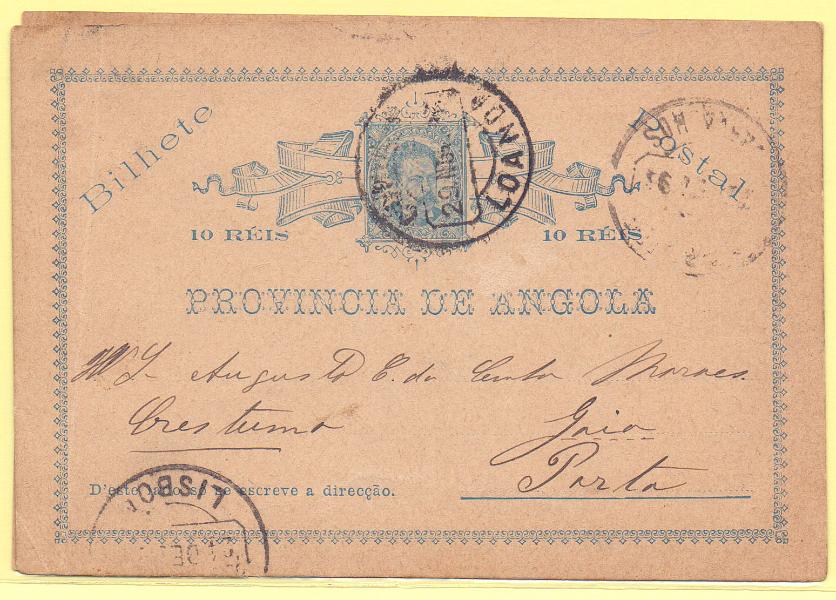 Bilhete Postal
10 RÉIS 10 RÉIS
LOANDA
29 NOV
PROVINCIA DE ANGOLA
Augusto C. da Cunha Moraes
Crestuma Gaia
Porto
D'este lado só se escreve a direcção.
LISBOA
DE